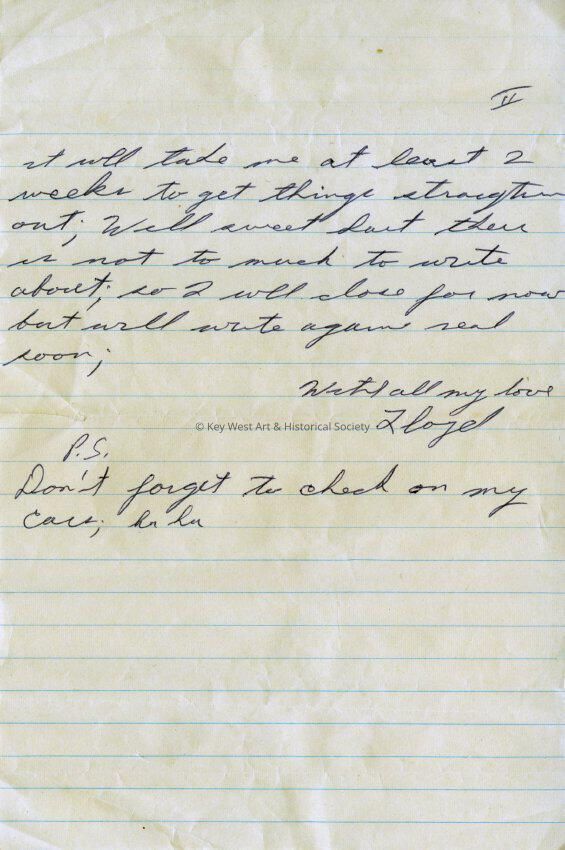 II
it will take me at least 2
weeks to get things straighten
out; Well sweet hart there
is not to much to write
about; so I will close for now
but will write again real
soon;
With all my love
© Key West Art & Historical Society
Lloyd
P.S.
Don't forget to check on my
Cars; ha ha